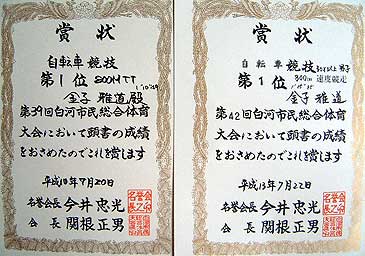 賞状
自転車競技
第1位 800MTT
金子 雅道殿
第39回白河市民総合体育
大会において頭書の成績
をおさめたのでこれを賞します
平成10年7月20日
名誉会長 今井忠光
会長 関根正男
賞状
自転車競技
第1位 800m 速度競走
金子 雅道
第42回白河市民総合体育
大会において頭書の成績
をおさめたのでこれを賞します
平成13年7月22日
名誉会長 今井忠光
会長 関根正男